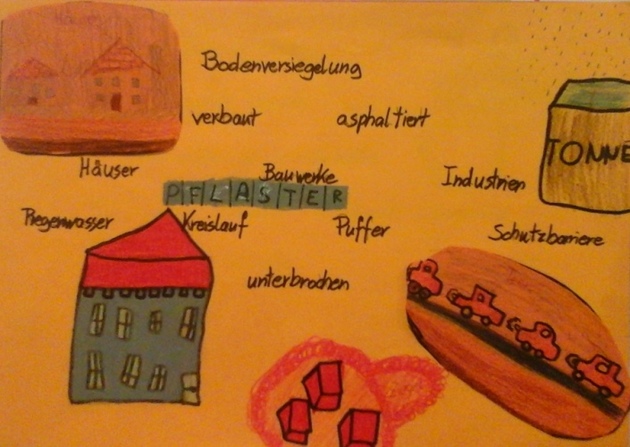 Häuser
Bodenversiegelung
verbaut
asphaltiert
TONNE
Häuser
Bauwerke
Industrien
PFLASTER
Regenwasser
Kreislauf
Puffer
Schutzbarriere
unterbrochen